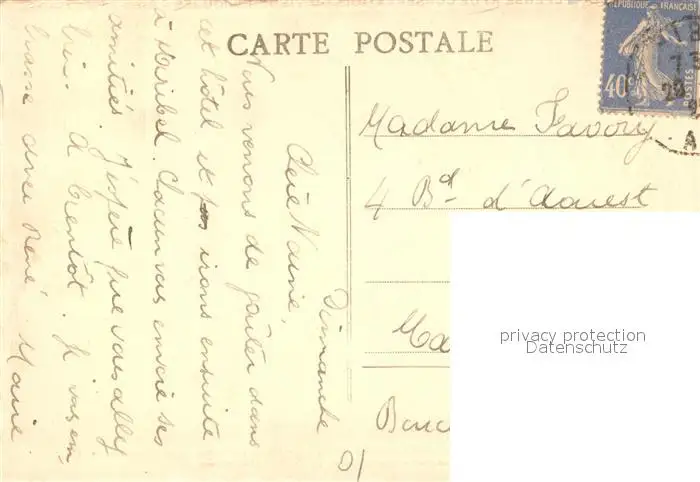 CARTE POSTALE
RÉPUBLIQUE FRANÇAISE
40c
POSTES
Madame Favory
4 Bd d'Aouest
Ma
Bouc
Dimanche
Chère Marie,
Nous venons de goûter dans
cet hôtel et irons ensuite
à Miribel. Chacun vous envoie ses
amitiés. J'espère que vous allez
bien. A bientôt. Je vous em-
brasse avec René. Marie
privacy protection
Datenschutz